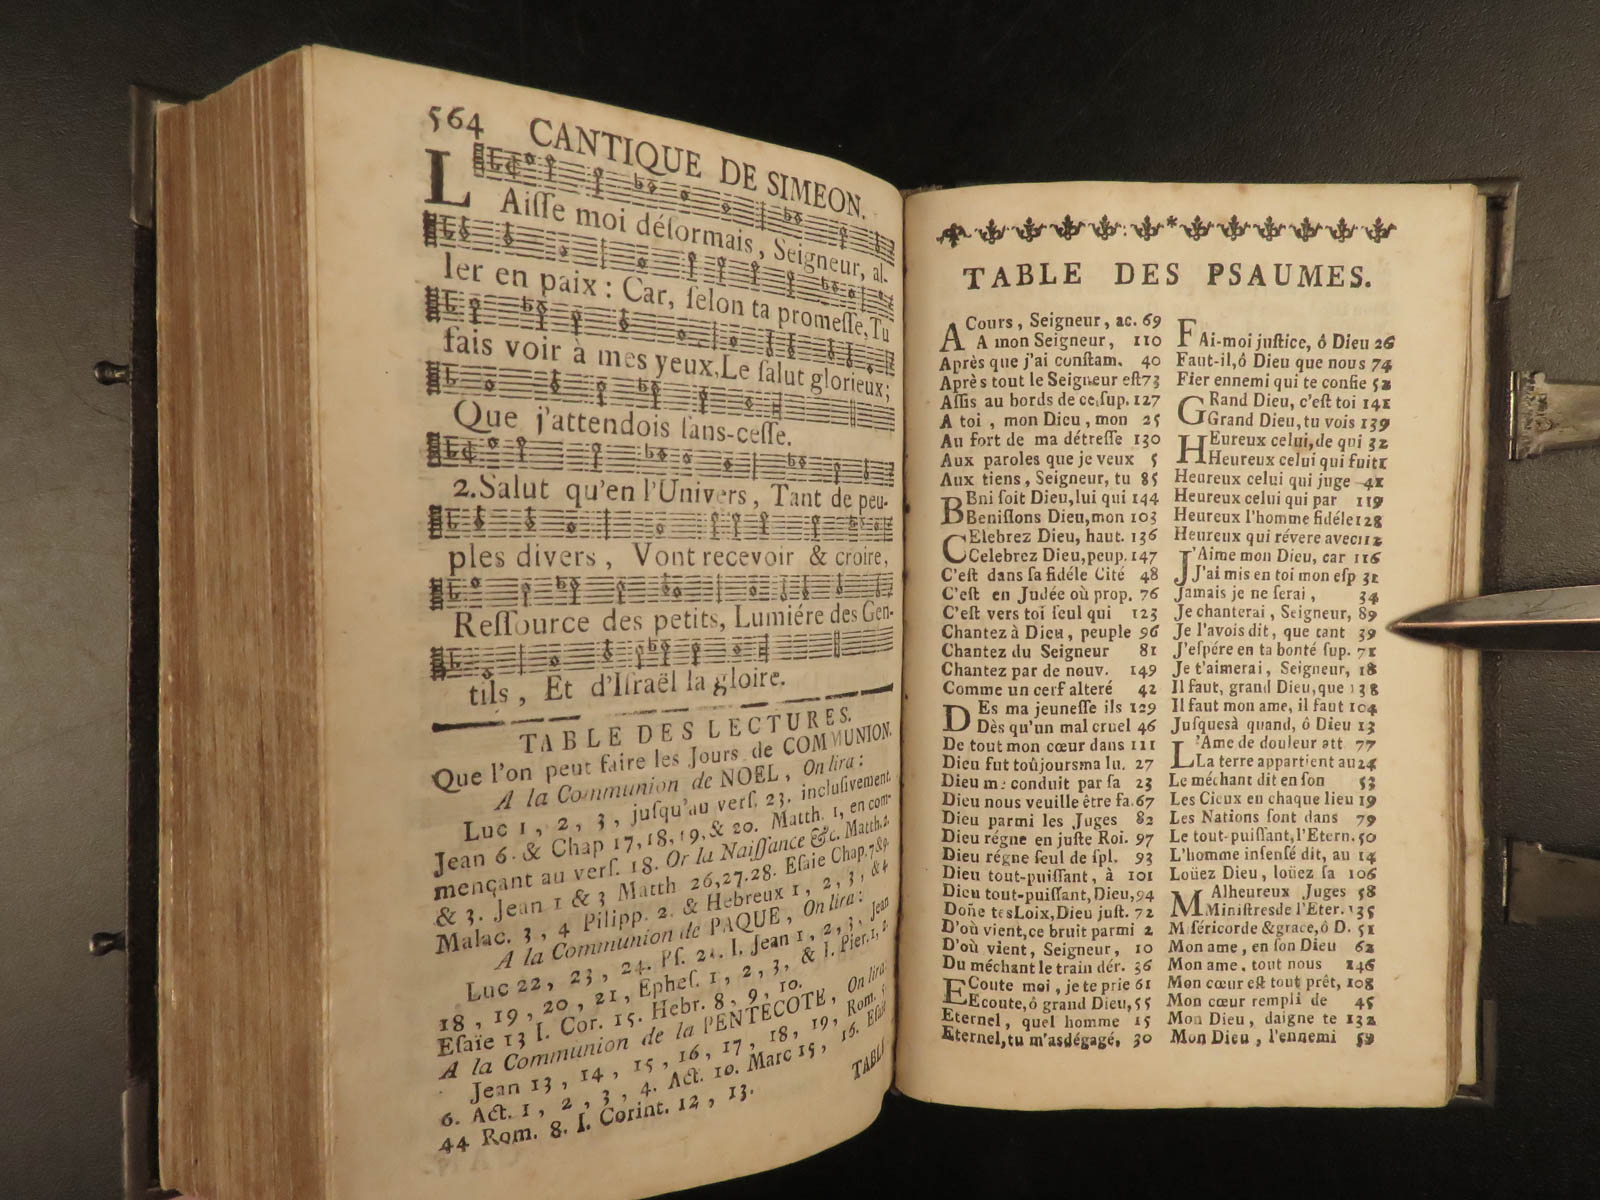 564 CANTIQUE DE SIMEON.
LAiſſe moi déſormais, Seigneur, al-
ler en paix : Car, ſelon ta promeſſe, Tu
fais voir à mes yeux, Le ſalut glorieux ;
Que j'attendois ſans-ceſſe.
2. Salut qu'en l'Univers, Tant de peu-
ples divers, Vont recevoir & croire,
Reſſource des petits, Lumiére des Gen-
tils, Et d'Iſraël la gloire.
TABLE DES LECTURES.
Que l'on peut faire les Jours de COMMUNION.
A la Communion de NOEL, On lira :
Luc 1, 2, 3, juſqu'au verſ. 23. incluſivement.
Jean 6. & Chap 17, 18, 19, & 20. Matth. 1, en com-
mençant au verſ. 18. Or la Naiſſance &c. Matth. 2.
& 3. Jean 1 & 3 Matth 26, 27. 28. Eſaie Chap. 7 & 9.
Malac. 3, 4 Pilipp. 2. & Hebreux 1, 2, 3, & 4
A la Communion de PAQUE, On lira :
Luc 22, 23, 24. Pſ. I. Jean 1, 2, 3, Jean
18, 19, 20, 21, Epheſ. 1, 2, 3, & I. Pier. 1, 2.
Eſaïe 13 I. Cor. 15. Hebr. 8, 9, 10.
A la Communion de la PENTECOTE, On lira
Jean 13, 14, 15, 16, 17, 18, 19, Rom.
6. Act. 1, 2, 3, 4. Act. 10. Marc 15, 16. Eſaï
44 Rom. 8. I. Corint. 12, 13.
TABLE
TABLE DES PSAUMES.
ACours, Seigneur, ac. 69
A mon Seigneur, 110
Après que j'ai conſtam. 40
Après tout le Seigneur eſt 73
Aſſis au bords de ce ſup. 127
A toi, mon Dieu, mon 25
Au fort de ma détreſſe 130
Aux paroles que je veux 5
Aux tiens, Seigneur, tu 85
BEni ſoit Dieu, lui qui 144
Beniſſons Dieu, mon 103
CElebrez Dieu, haut. 136
Celebrez Dieu, peup. 147
C'eſt dans ſa fidéle Cité 48
C'eſt en Judée où prop. 76
C'eſt vers toi ſeul qui 123
Chantez à Dieu, peuple 96
Chantez du Seigneur 81
Chantez par de nouv. 149
Comme un cerf alteré 42
DEs ma jeuneſſe ils 129
Dès qu'un mal cruel 46
De tout mon cœur dans 111
Dieu fut toûjours ma lu. 27
Dieu me conduit par ſa 23
Dieu nous veuille être fa. 67
Dieu parmi les Juges 82
Dieu régne en juſte Roi. 97
Dieu régne ſeul de ſpl. 93
Dieu tout-puiſſant, à 101
Dieu tout-puiſſant, Dieu, 94
Doñe tes Loix, Dieu juſt. 72
D'où vient, ce bruit parmi 2
D'où vient, Seigneur, 10
Du méchant le train dér. 36
ECoute moi, je te prie 61
Ecoute, ô grand Dieu, 55
Eternel, quel homme 15
Eternel, tu m'as dégagé, 30
FAi-moi juſtice, ô Dieu 26
Faut-il, ô Dieu que nous 74
Fier ennemi qui te confie 52
GRand Dieu, c'eſt toi 141
Grand Dieu, tu vois 139
HEureux celui, de qui 32
Heureux celui qui fuit 1
Heureux celui qui juge 41
Heureux celui qui par 119
Heureux l'homme fidéle 128
Heureux qui révere avec 112
J'Aime mon Dieu, car 116
J'ai mis en toi mon eſp 31
Jamais je ne ſerai, 34
Je chanterai, Seigneur, 89
Je l'avois dit, que tant 39
J'eſpére en ta bonté ſup. 71
Je t'aimerai, Seigneur, 18
Il faut, grand Dieu, que 138
Il faut mon ame, il faut 104
Juſquesà quand, ô Dieu 13
L'Ame de douleur att 77
La terre appartient au 24
Le méchant dit en ſon 53
Les Cieux en chaque lieu 19
Les Nations ſont dans 79
Le tout-puiſſant, l'Etern. 50
L'homme inſenſé dit, au 14
Loüez Dieu, loüez ſa 106
MAlheureux Juges 58
Miniſtres de l'Eter. 135
Miſéricorde & grace, ô D. 51
Mon ame, en ſon Dieu 62
Mon ame, tout nous 146
Mon cœur eſt tout prêt, 108
Mon cœur rempli de 45
Mon Dieu, daigne te 132
Mon Dieu, l'ennemi 59